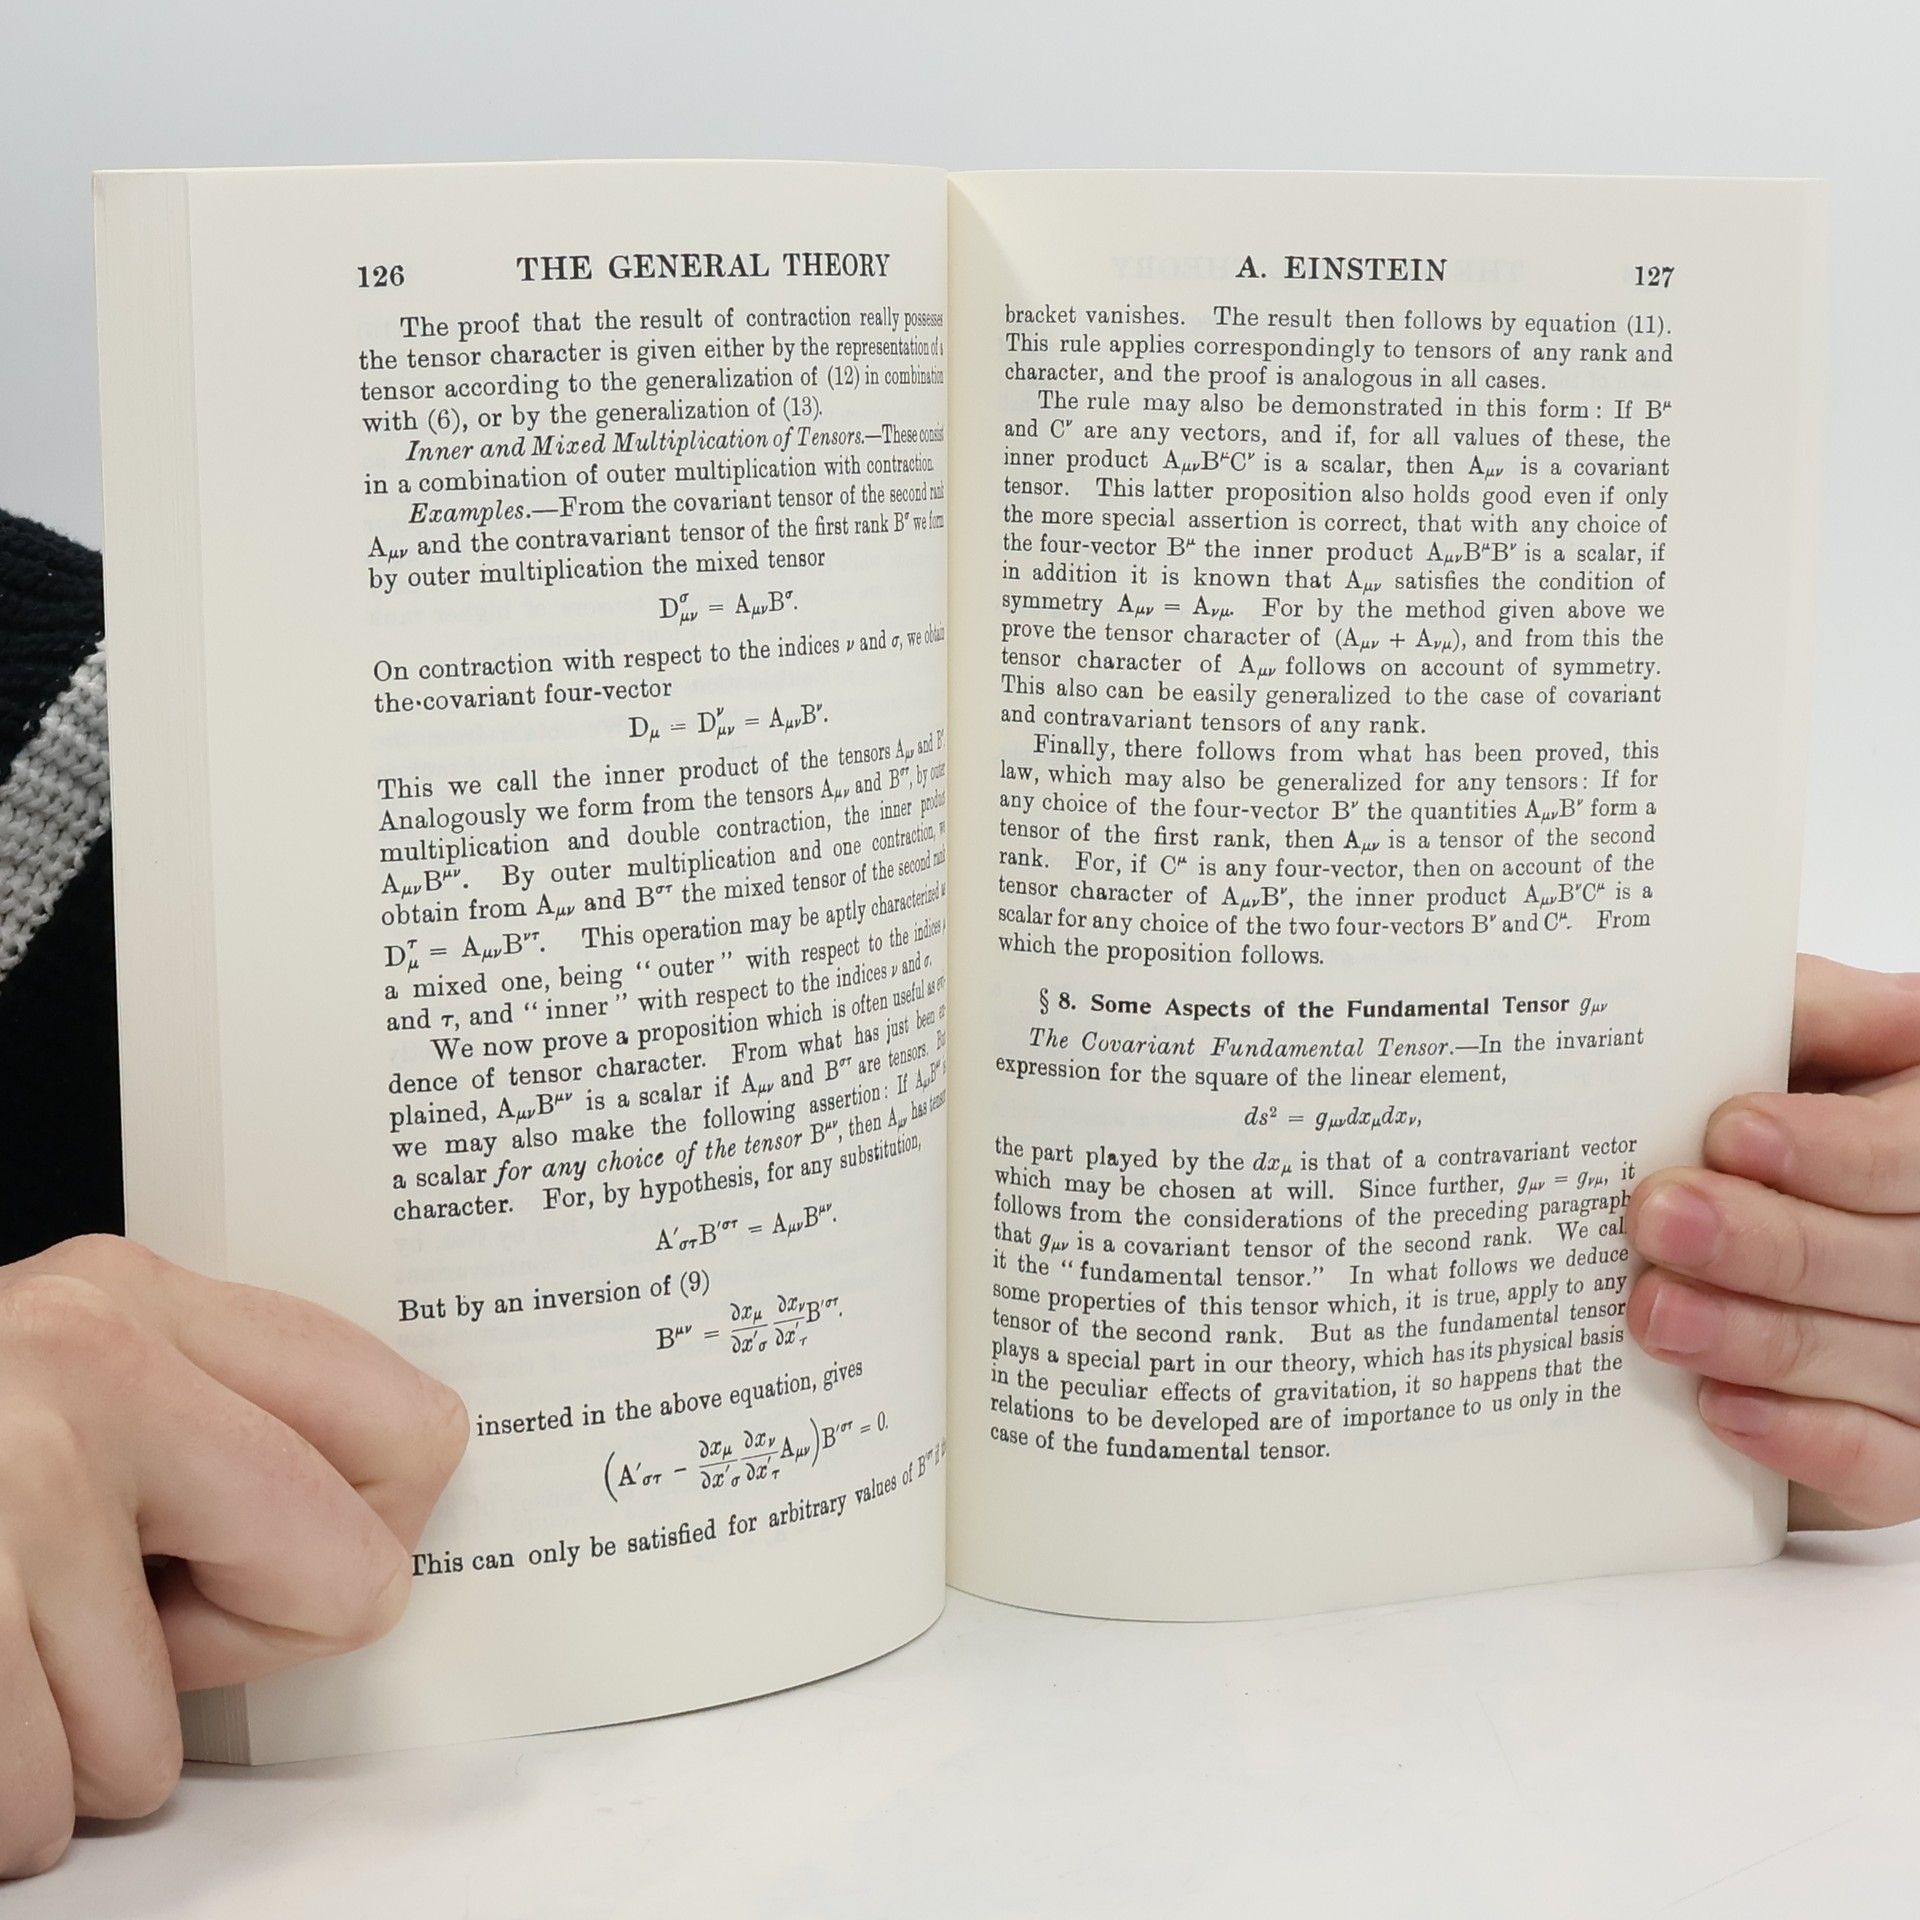 126 THE GENERAL THEORY
The proof that the result of contraction really possesses
the tensor character is given either by the representation of a
tensor according to the generalization of (12) in combination
with (6), or by the generalization of (13).
Inner and Mixed Multiplication of Tensors.—These consist
in a combination of outer multiplication with contraction.
Examples.—From the covariant tensor of the second rank
Aμν and the contravariant tensor of the first rank Bσ we form
by outer multiplication the mixed tensor
Dσμν = AμνBσ.
On contraction with respect to the indices ν and σ, we obtain
the covariant four-vector
Dμ = Dνμν = AμνBν.
This we call the inner product of the tensors Aμν and Bσ.
Analogously we form from the tensors Aμν and Bστ, by outer
multiplication and double contraction, the inner product
AμνBμν. By outer multiplication and one contraction, we
obtain from Aμν and Bστ the mixed tensor of the second rank
Dτμ = AμνBντ. This operation may be aptly characterized as
a mixed one, being “outer” with respect to the indices μ
and τ, and “inner” with respect to the indices ν and σ.
We now prove a proposition which is often useful as evi-
dence of tensor character. From what has just been ex-
plained, AμνBμν is a scalar if Aμν and Bστ are tensors. But
we may also make the following assertion: If AμνBμν is
a scalar for any choice of the tensor Bμν, then Aμν has tensor
character. For, by hypothesis, for any substitution,
A′στB′στ = AμνBμν.
But by an inversion of (9)
Bμν = ∂xμ/∂x′σ ∂xν/∂x′τ B′στ.
inserted in the above equation, gives
(A′στ − ∂xμ/∂x′σ ∂xν/∂x′τ Aμν)B′στ = 0.
This can only be satisfied for arbitrary values of B′στ if the
A. EINSTEIN 127
bracket vanishes. The result then follows by equation (11).
This rule applies correspondingly to tensors of any rank and
character, and the proof is analogous in all cases.
The rule may also be demonstrated in this form: If Bμ
and Cν are any vectors, and if, for all values of these, the
inner product AμνBμCν is a scalar, then Aμν is a covariant
tensor. This latter proposition also holds good even if only
the more special assertion is correct, that with any choice of
the four-vector Bμ the inner product AμνBμBν is a scalar, if
in addition it is known that Aμν satisfies the condition of
symmetry Aμν = Aνμ. For by the method given above we
prove the tensor character of (Aμν + Aνμ), and from this the
tensor character of Aμν follows on account of symmetry.
This also can be easily generalized to the case of covariant
and contravariant tensors of any rank.
Finally, there follows from what has been proved, this
law, which may also be generalized for any tensors: If for
any choice of the four-vector Bν the quantities AμνBν form a
tensor of the first rank, then Aμν is a tensor of the second
rank. For, if Cμ is any four-vector, then on account of the
tensor character of AμνBν, the inner product AμνBνCμ is a
scalar for any choice of the two four-vectors Bν and Cμ. From
which the proposition follows.
§ 8. Some Aspects of the Fundamental Tensor gμν
The Covariant Fundamental Tensor.—In the invariant
expression for the square of the linear element,
ds² = gμνdxμdxν,
the part played by the dxμ is that of a contravariant vector
which may be chosen at will. Since further, gμν = gνμ, it
follows from the considerations of the preceding paragraph
that gμν is a covariant tensor of the second rank. We call
it the “fundamental tensor.” In what follows we deduce
some properties of this tensor which, it is true, apply to any
tensor of the second rank. But as the fundamental tensor
plays a special part in our theory, which has its physical basis
in the peculiar effects of gravitation, it so happens that the
relations to be developed are of importance to us only in the
case of the fundamental tensor.